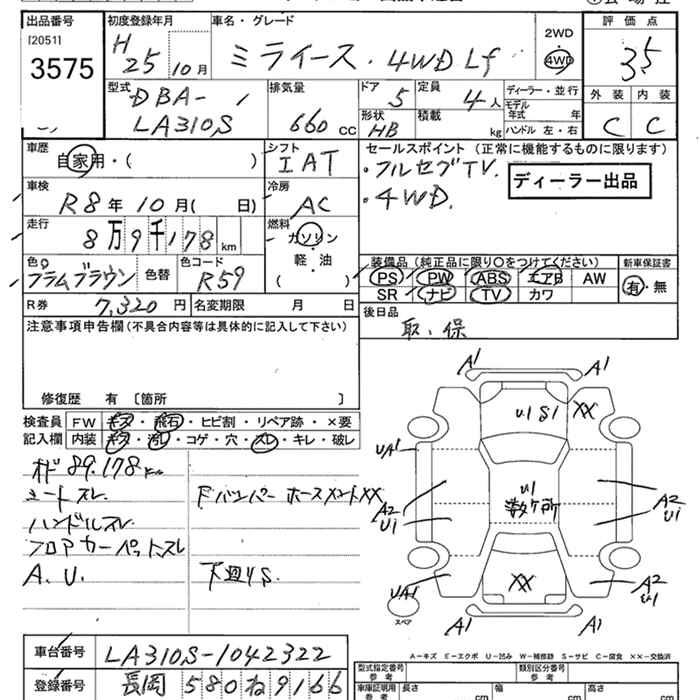 出品番号 初度登録年月 車名・グレード 評価点
[20511]
3575
H 25 10月
ミライース・4WD Lf
2WD
4WD
3.5
型式 DBA-
LA310S
排気量
660 cc
ドア 5
定員 4人
ディーラー・並行
モデル年式 年
形状 HB
積載 kg
ハンドル 左・右
外装 内装
C C
車歴 自家用・( )
シフト IAT
セールスポイント (正常に機能するものに限ります)
・フルセグTV.
・4WD.
ディーラー出品
車検 R8年10月( 日)
冷房 AC
走行 8万9千178km
燃料 ガソリン
軽・油
( )
色 プラムブラウン 色替
色コード R59
装備品(純正品に限り○をつけてください) 新車保証書
PS PW ABS エアB AW
SR ナビ TV カワ
有・無
R券 7,320円 名変期限 月 日
後日品
取、保
注意事項申告欄(不具合内容等は具体的に記入して下さい)
修復歴 有 〔箇所 〕
検査員記入欄
FW キズ・飛石・ヒビ割・リペア跡・×要
内装 キズ・汚レ・コゲ・穴・スレ・キレ・破レ
オド 89.178km
シートスレ
ハンドルスレ
フロアカーペットスレ
A.U.
Fバンパー ホースメントXX
下廻りS.
A1 A1
U1 S1 XX
UA1
A2 U1
U1 数ケ所
A2 U1
UA1
XX
A2 U1
スペア
A1 A1
A-キズ E-エクボ U-凹み W-補修跡 S-サビ C-腐食 XX-交換済
車台番号 LA310S-1042322
登録番号 長岡 580 ね 9166
型式指定番号 参考
類別区分番号 参考
車庫証明用 参考 長さ cm 幅 cm 高さ cm